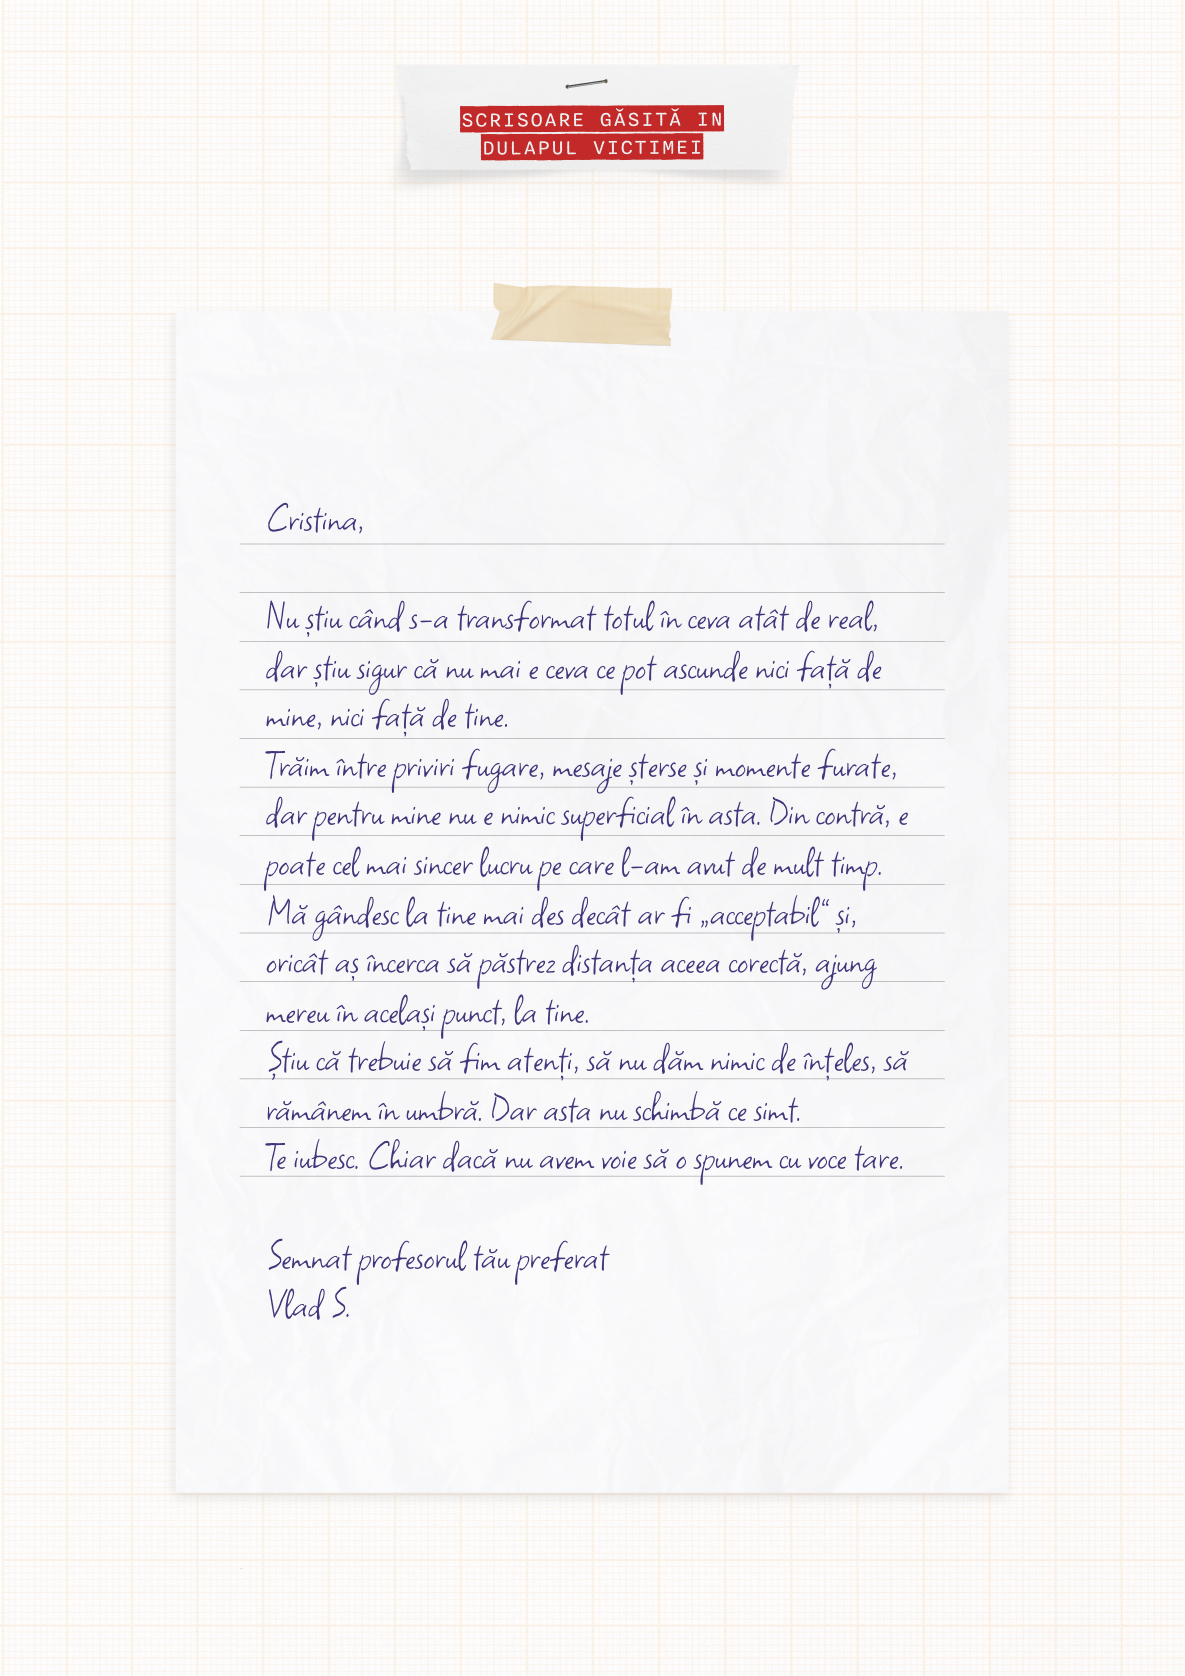 SCRISOARE GĂSITĂ IN
DULAPUL VICTIMEI
Cristina,
Nu știu când s-a transformat totul în ceva atât de real,
dar știu sigur că nu mai e ceva ce pot ascunde nici față de
mine, nici față de tine.
Trăim între priviri fugare, mesaje șterse și momente furate,
dar pentru mine nu e nimic superficial în asta. Din contră, e
poate cel mai sincer lucru pe care l-am avut de mult timp.
Mă gândesc la tine mai des decât ar fi „acceptabil“ și,
oricât aș încerca să păstrez distanța aceea corectă, ajung
mereu în același punct, la tine.
Știu că trebuie să fim atenți, să nu dăm nimic de înțeles, să
rămânem în umbră. Dar asta nu schimbă ce simt.
Te iubesc. Chiar dacă nu avem voie să o spunem cu voce tare.
Semnat profesorul tău preferat
Vlad S.